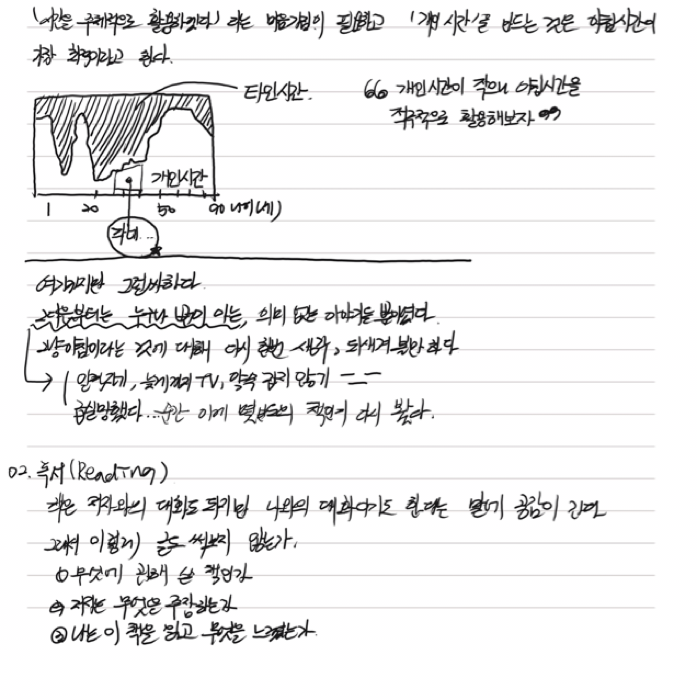 「시간을 주체적으로 활용하겠다」 라는 마음가짐이 필요하고 「개인 시간」을 만드는 것은 아침시간이
가장 최적이라고 한다.
타인시간.
66 개인시간이 적으니 아침시간을
적극적으로 활용해보자 99
개인시간
1 20 50 90 나이(세)
여기까지만 그럴싸하다.
그다음부터는 누구나 아는, 의미 없는 이야기들 뿐이었다.
그냥 아침이라는 것에 대해 다시 한번 생각, 되새겨 볼만 하다
일찍자기, 늦게까지 TV, 약속 잡지 않기 ㅡ.ㅡ
급실망했다... 순간 이게 몇번도의 책인지 다시 봤다.
02. 독서(Reading)
책은 저자와의 대화도 되지만 나와의 대화이기도 한다는 말이 공감이 간다
그래서 이렇게 글도 써보지 않는가.
① 무엇에 관해 쓴 책인가
② 저자는 무엇을 주장하는가
③ 나는 이 책을 읽고 무엇을 느꼈는가.